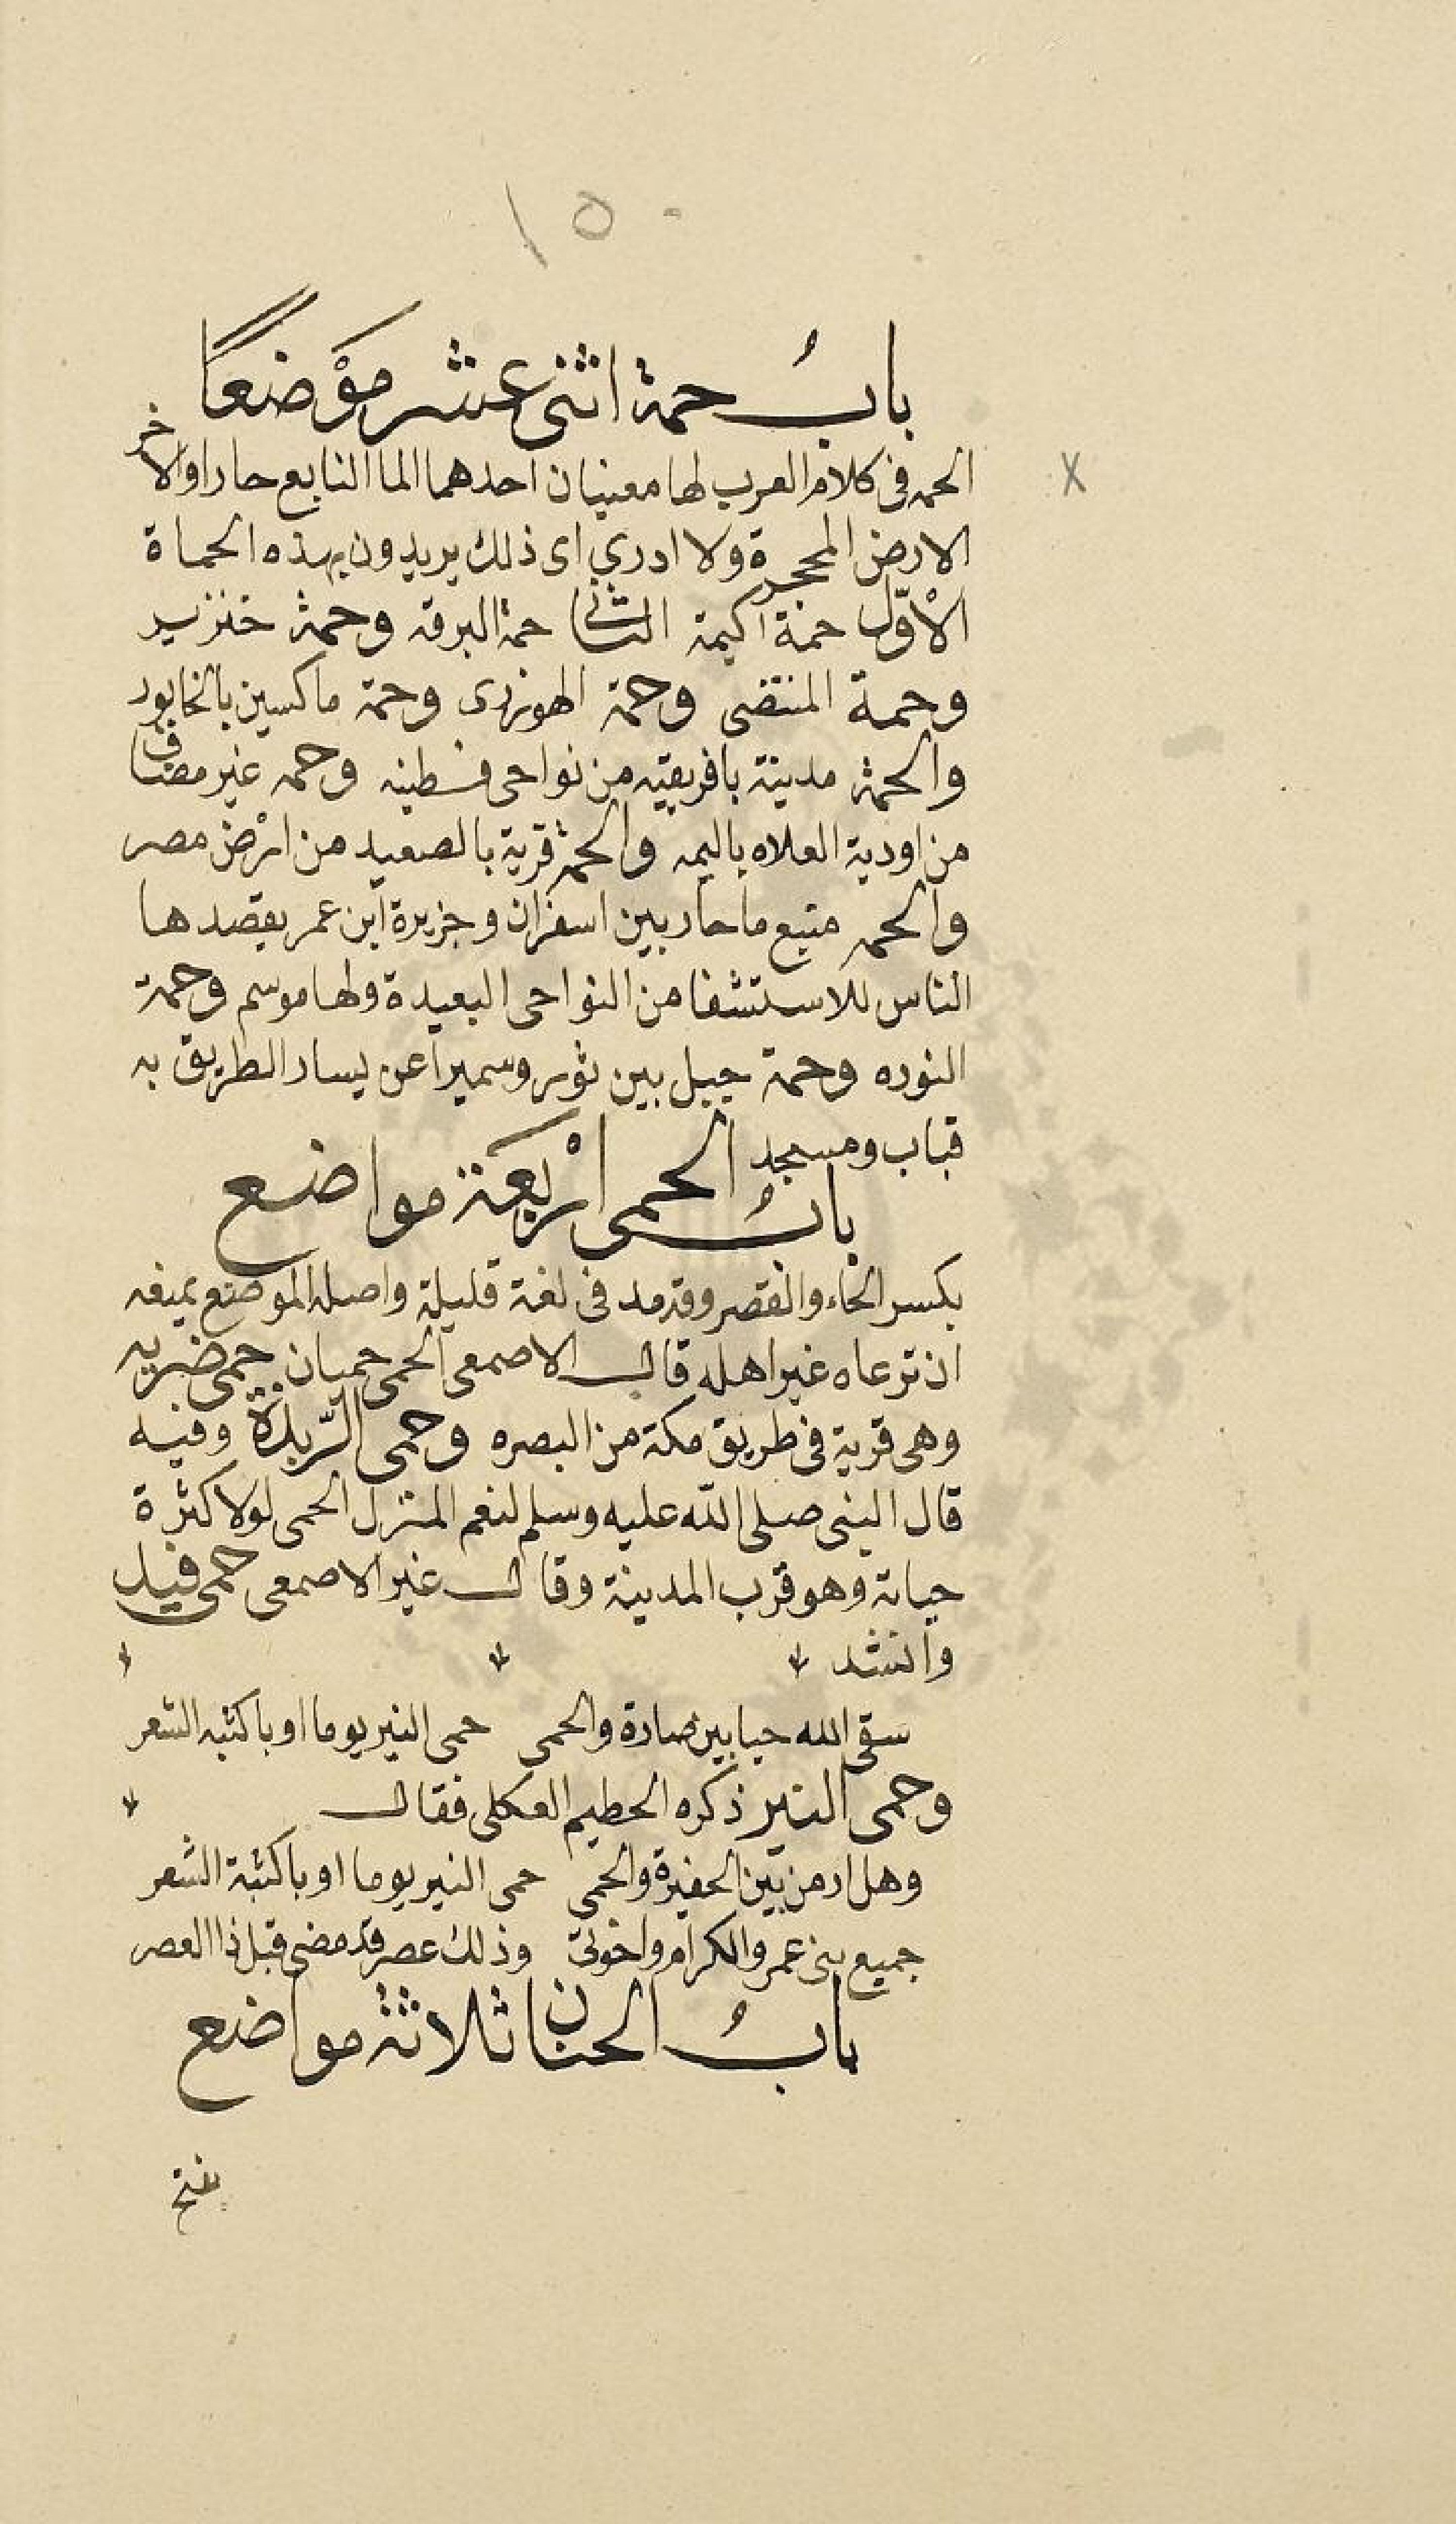 ١٥٠
بابُ حمة اثنى عشر مَوْضعًا
الحمه فى كلام العرب لها معنيان احدهما الما النابع حارا والآخر
الارض المحجرة ولا ادري اى ذلك يريدون بهذه الحماة
الْاوّل حمة اكيمة الثانى حمة البرقه وحمة خنزير
وحمة المنتضى وحمة الهونردى وحمة ماكسين بالخابور
والحمة مدينة بافريقيه من نواحى قسطينه وحمه غير مضاف
من اودية العلاه باليمه والحمة قرية بالصعيد من ارْض مصر
والحمه متبع ما حار بين اسفران وجزيرة ابن عمر يقصدها
الناس للاستشفا من النواحى البعيدة ولها موسم وحمة
النوره وحمة جبل بين ثور وسميرا عن يسار الطريق به
قباب ومسجد
بابُ الحمى ارْبعة مواضع
بكسر الحاء والقصر وقد مد فى لغة قليلة واصله الموضع يمنع
ان ترعاه غير اهله قال الاصمعى الحمى حميان حمى ضريه
وهى قرية فى طريق مكة من البصره وحمى الرّبذة وفيه
قال النبى صلى الله عليه وسلم لنعم المنزل الحمى لولا كثرة
حياته وهو قرب المدينة وقال غير الاصمعى حمى فيد
وانشد
سقى الله حيا بين صارة والحمى حمى النير يوما او باكثبه الشعر
وحمى النير ذكره الحطيم العكلى فقال
وهل ار من بين الحفيرة والحمى حمى النير يوما او باكثبة الشعر
جميع بنى عمر والكرام واخوتى وذلك عصر قد مضى قبل ذا العصر
بابُ الحنان ثلاثة مواضع
بفتح